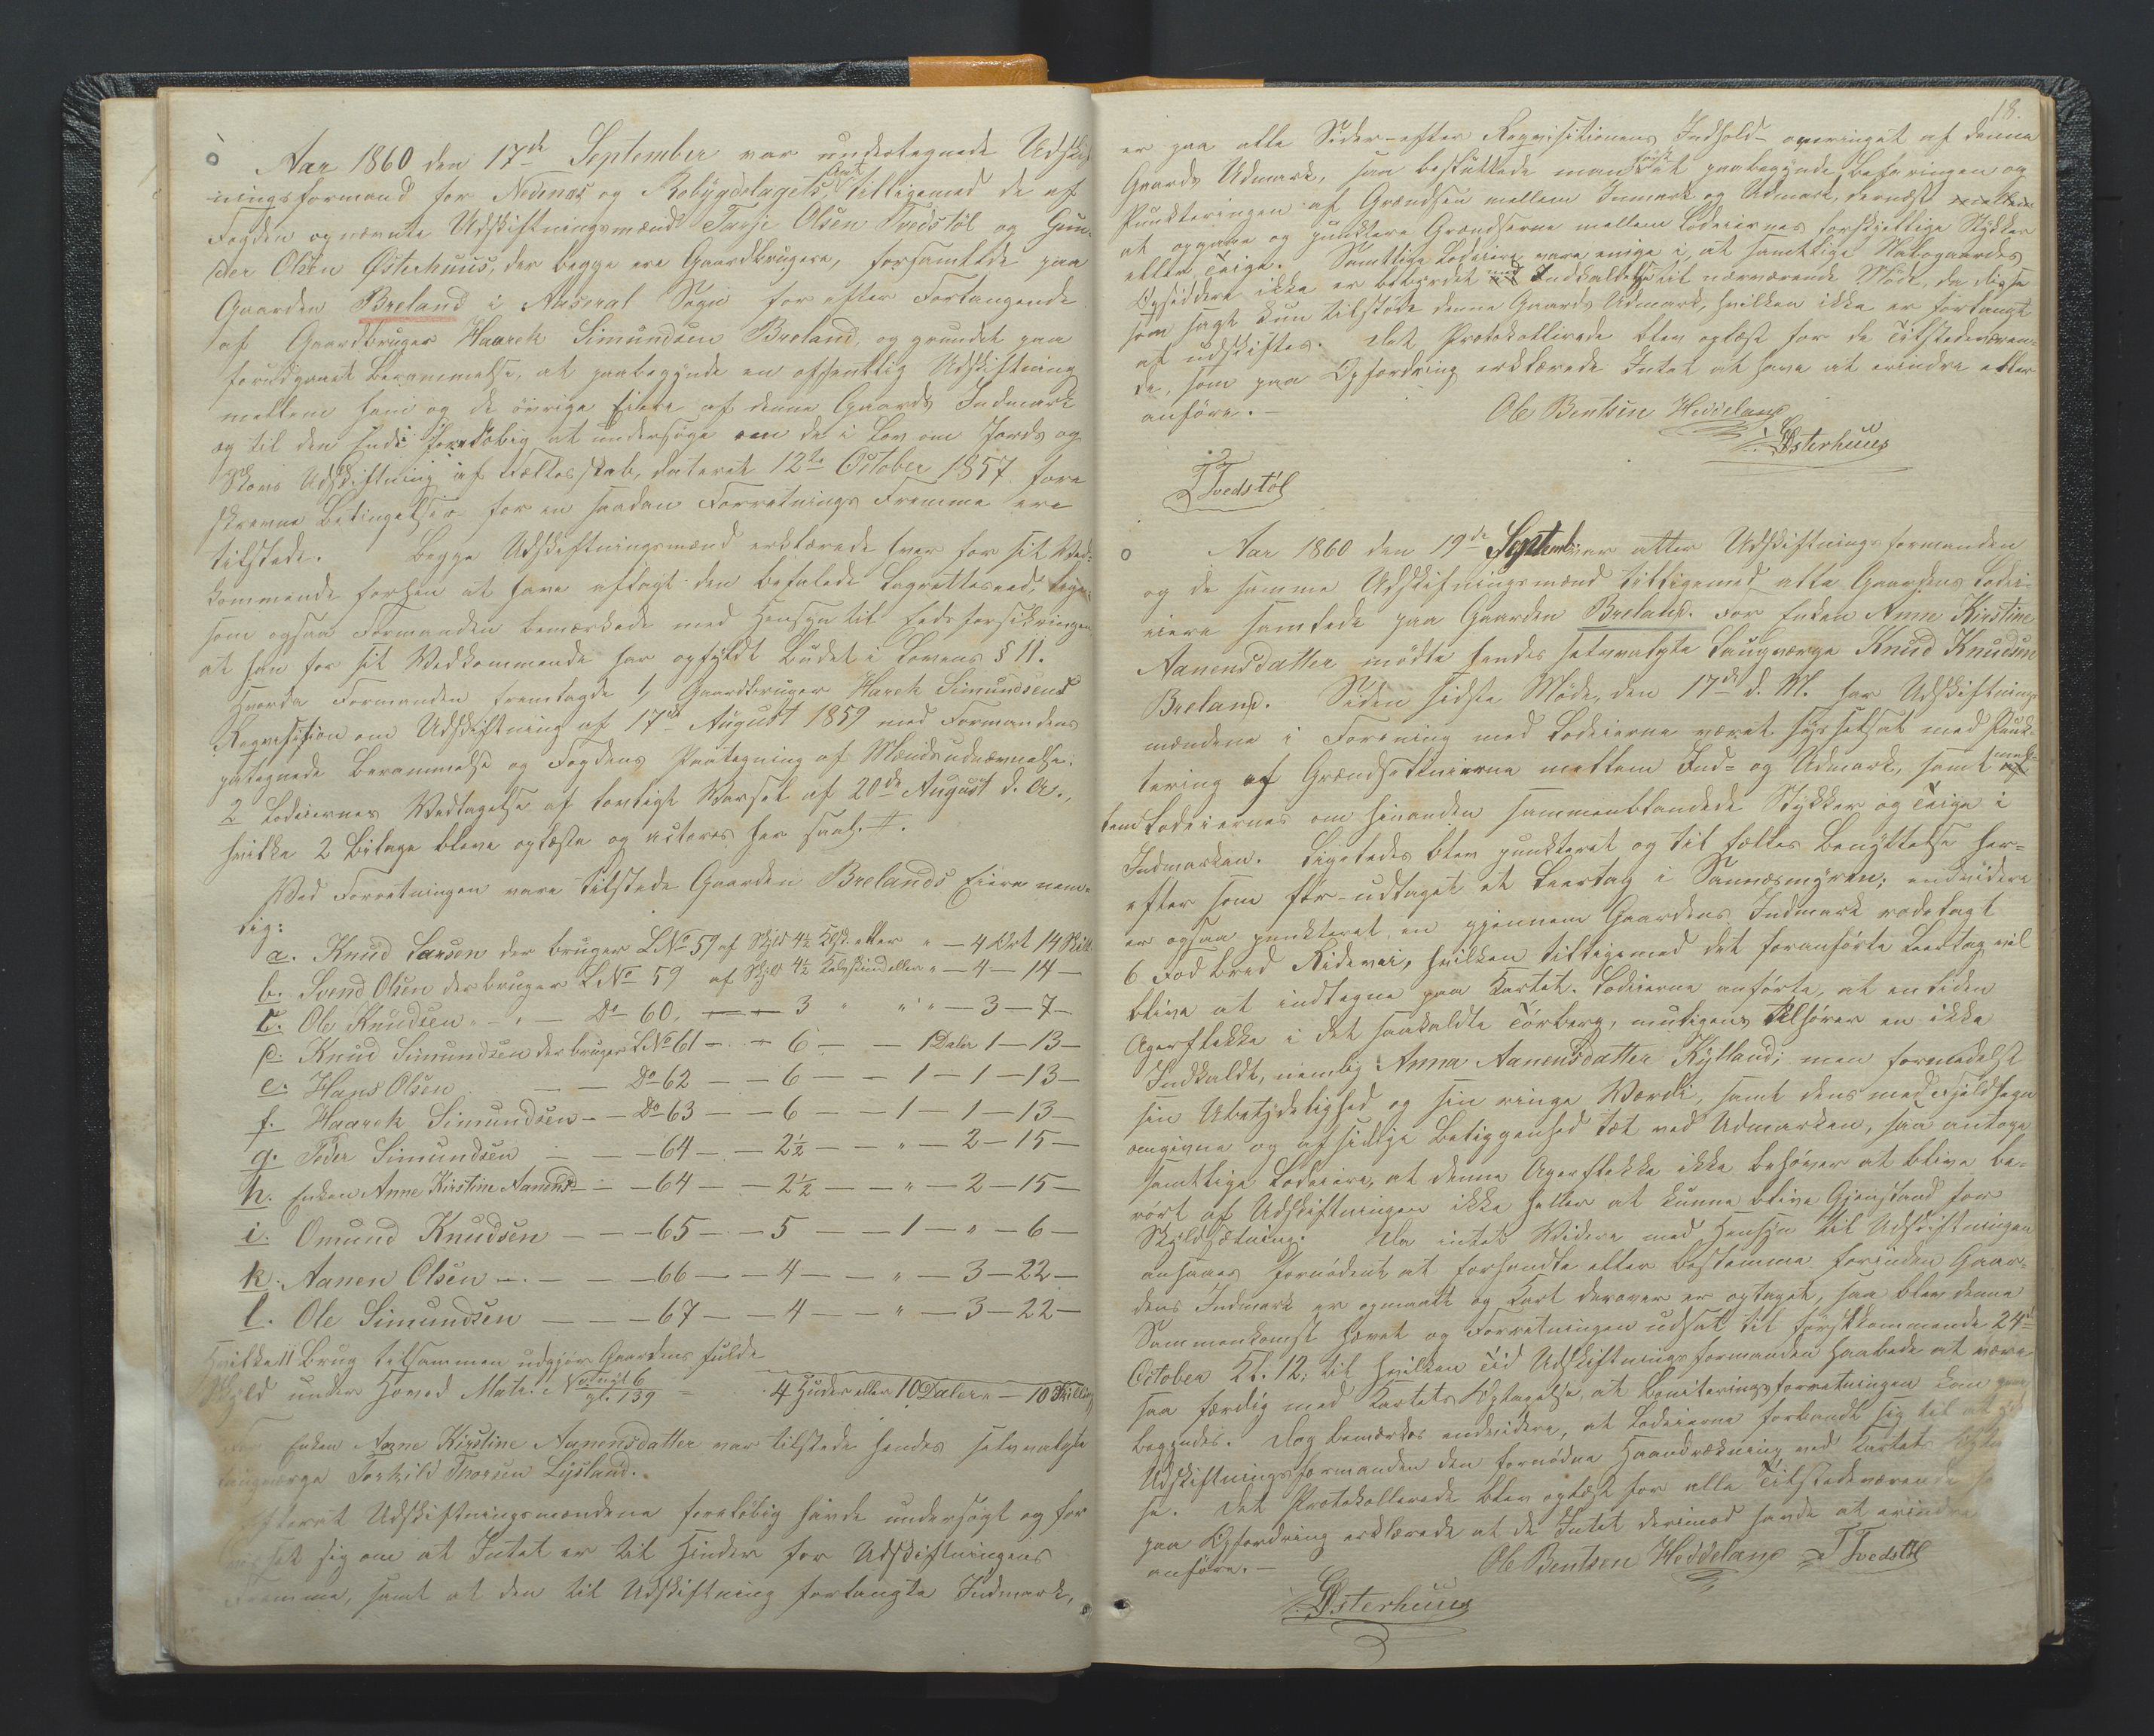 Aar 1860 den 17de September var undertegnede Udskift-
ningsformand for Nedenæs og Robygdelagets Amt tilligemed de af
Fogden opnævnte Udskiftningsmænd Tarje Olsen Tvedstöl og Gun-
der Olsen Østerhuus, der begge ere Gaardbrugere, forsamlede paa
Gaarden Breland i Aaseral Sogn for efter Forlangende
af Gaardbruger Haarek Simundsen Breland, og grundet paa
forudgaaet Berammelse, at paabegynde en offentlig Udskiftning
mellem ham og de övrige Eiere af denne Gaards Indmark
og til den Ende foreløbig at undersöge om de i Lov om Jords og
Skovs Udskiftning af Fællesskab, dateret 12te October 1857 fore
skrevne Betingelser for en saadan Forretnings Fremme ere
tilstede. Begge Udskiftningsmænd erklærede hver for sit Ved-
kommende forhen at have aflagt den befalede Lagrettesed, lige-
som ogsaa Formanden bemærkede med Hensyn til Edsforsikringen
at han for sit Vedkommende har opfyldt Budet i Lovens § 11.
Hvorda Formanden fremlagde 1, Gaardbruger Harek Simundsens
Reqvisition om Udskiftning af 17de August 1859 med Formandens
paategnede Berammelse og Fogdens Paategning af Mændsudnævnelse;
2 Lodeiernes Vedtagelse af lovligt Varsel af 20de August d. A.,
hvilke 2 Bilage bleve oplæste og acteres her saal. #.
Ved Forretningen vare tilstede Gaarden Brelands Eiere nem-
lig:
a. Knud Larsen der bruger LNo 57 af Skyld 4½ Klsk. eller " — 4 Ort 14 Skill
b. Svend Olsen der bruger LNo 59 af Skyld 4½ Kalvskind eller " — 4 — 14 —
c. Ole Knudsen " — " — Do 60, — — 3 " " " — 3 — 7 —
d. Knud Simundsen der bruger LNo 61 — — 6 — — 1 Daler 1 — 13 —
e. Hans Olsen — — Do 62 — — 6 — — 1 — 1 — 13 —
f. Haarek Simundsen — — Do 63 — — 6 — — 1 — 1 — 13 —
g. Peder Simundsen — — — 64 — — 2½ — — " — 2 — 15 —
h. Enken Anne Kirstine Aanensd — — 64 — — 2½ — — " — 2 — 15 —
i. Omund Knudsen — — — 65 — — 5 — — 1 — " — 6 —
k. Aanen Olsen — — — — 66 — — 4 — — " — 3 — 22 —
l. Ole Simundsen — — — 67 — — 4 — — " — 3 — 22 —
Hvilke 11 Brug tilsammen udgjör Gaardens fulde
Skyld under Hoved Matr. No nyt 6 gl. 139 = 4 Huder eller 10 Daler " — 10 Skilling
For Enken Anne Kirstine Aanensdatter var tilstede hendes selvvalgte
Laugværge Torkild Thorsen Lysland.
Efterat Udskiftningsmændene foreløbig havde undersögt og for
visset sig om at Intet er til Hinder for Udskiftningens
Fremme, samt at den til Udskiftning forlangte Indmark,
18.
er paa alle Sider – efter Reqvisitionens Indhold – omringet af denne
Gaards Udmark, saa besluttede man först at paabegynde Befaringen og
Punkteringen af Grændsen mellem Inmark og Udmark, dernæst
at opgaae og punktere Grændserne mellem Lodeiernes forskjellige Stykker
eller Teige. Samtlige Lodeiere vare enige i, at samtlige Nabogaardes
Opsiddere ikke er bebyrdet med Indkaldelse til nærværende Möde, da disse
som sagt kun tilstöde denne Gaards Udmark, hvilken ikke er forlangt
at udskiftes. Det Protokollerede blev oplæst for de Tilstedeværen-
de, som paa Opfordring erklærede Intet at have at erindre eller
anföre. —
Ole Bentsen Heddeland
G Østerhuus
T Tvedstöl
Aar 1860 den 19de September var atter Udskiftningsformanden
og de samme Udskiftningsmænd tilligemed alle Gaardens Lodei-
eiere samlede paa Gaarden Breland. For Enken Anne Kirstine
Aanensdatter mödte hendes selvvalgte Laugværge Knud Knudsen
Breland. Siden sidste Möde, den 17de d. M. har Udskiftnings
mændene i Forening med Lodeierne været sysselsat med Punk-
tering af Grændselinierne mellem Ind- og Udmark, samt mel-
lem Lodeiernes om hinanden sammenblandede Stykker og Teige i
Indmarken. Ligeledes blev punkteret og til fælles Benyttelse her-
efter som för – udtaget et Leertag i Sannesmyren; endvidere
er ogsaa punkteret en gjennem Gaardens Indmark rodelagt
6 Fod bred Ridevei, hvilken tilligemed det foranförte Leertag vil
blive at indtegne paa Kartet. Lodeierne anförte, at en liden
Agerflekke i det saakaldte Törberg, muligens tilhører en ikke
Indkaldt, nemlig Anna Aanensdatter Kylland; men formedelst
sin Ubetydelighed og sin ringe Værdi, samt dens med Fjeldhegn
omgivne og afsidige Beliggenhed tæt ved Udmarken, saa antoge
samtlige Lodeiere, at denne Agerflekke ikke behöver at blive be-
rört af Udskiftningen ikke heller at kunne blive Gjenstand for
Skyldsætning. Da intet Videre med Hensyn til Udskiftningen
ansaaes fornödent at forhandle eller bestemme forinden Gaar-
dens Indmark er opmaalt og Kart derover er optaget, saa blev denne
Sammenkomst hævet og Forretningen udsat til förstkommende 24de
October Kl. 12; til hvilken Tid Udskiftningsformanden haabede at være
saa færdig med Kartets Optagelse, at Boniteringsforretningen kan paa
begyndes. Dog bemærkes endvidere, at Lodeierne forbandt sig til at yde
Udskiftningsformanden den fornödne Haandrækning ved Kartets
se. Det Protokollerede blev oplæst for alle Tilstedeværende
paa Opfordring erklærede at de Intet derimod havde at erindre
anföre. —
Ole Bentsen Heddeland T Tvedstöl
G Østerhuus